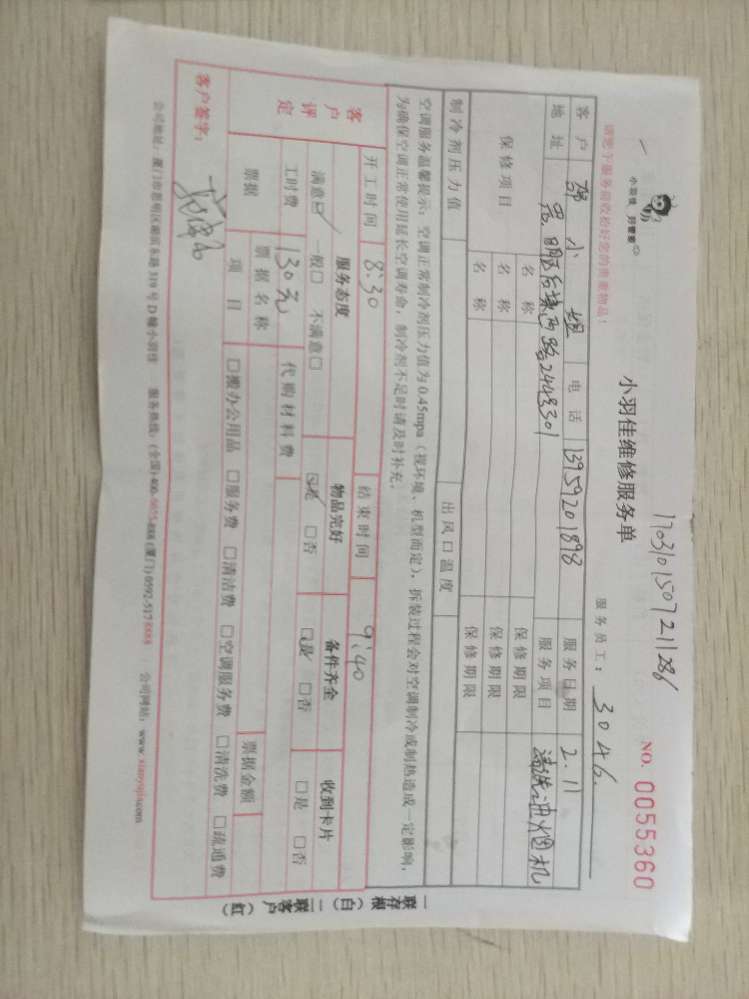 小羽佳 好管家
请您于服务前收检好您的贵重物品！
小羽佳维修服务单
1703101507211286
NO. 0055360
服务员工： 3046.
客户 小姐 电话 13959201898 服务日期 2.11
地址 2443301 服务项目 清洗油烟机
保修项目 名称 保修期限
名称 保修期限
名称 保修期限
制冷剂压力值 出风口温度
空调服务温馨提示：空调正常制冷剂压力值为0.45mpa（视环境、机型而定），拆装过程会对空调制冷或制热造成一定影响，
为确保空调正常使用延长空调寿命，制冷剂不足时请及时补充。
开工时间 8:30 结束时间 9:40
客户评定 服务态度 物品完好 备件齐全 收到卡片
满意☑ 一般□ 不满意□ ☑是 □否 ☑是 □否 □是 □否
工时费 130元 代购材料费
票据 票据名称 票据金额
项目 □搬办公用品 □服务费 □清洁费 □空调服务费 □清洗费 □疏通费
客户签字：
公司地址：厦门市思明区湖滨 路319号D幢小羽佳 服务热线：(全国)400- -888 (厦门)0592-5178888 公司网站：www.xiaoyujia.com
一联存根（白） 二联客户（红）